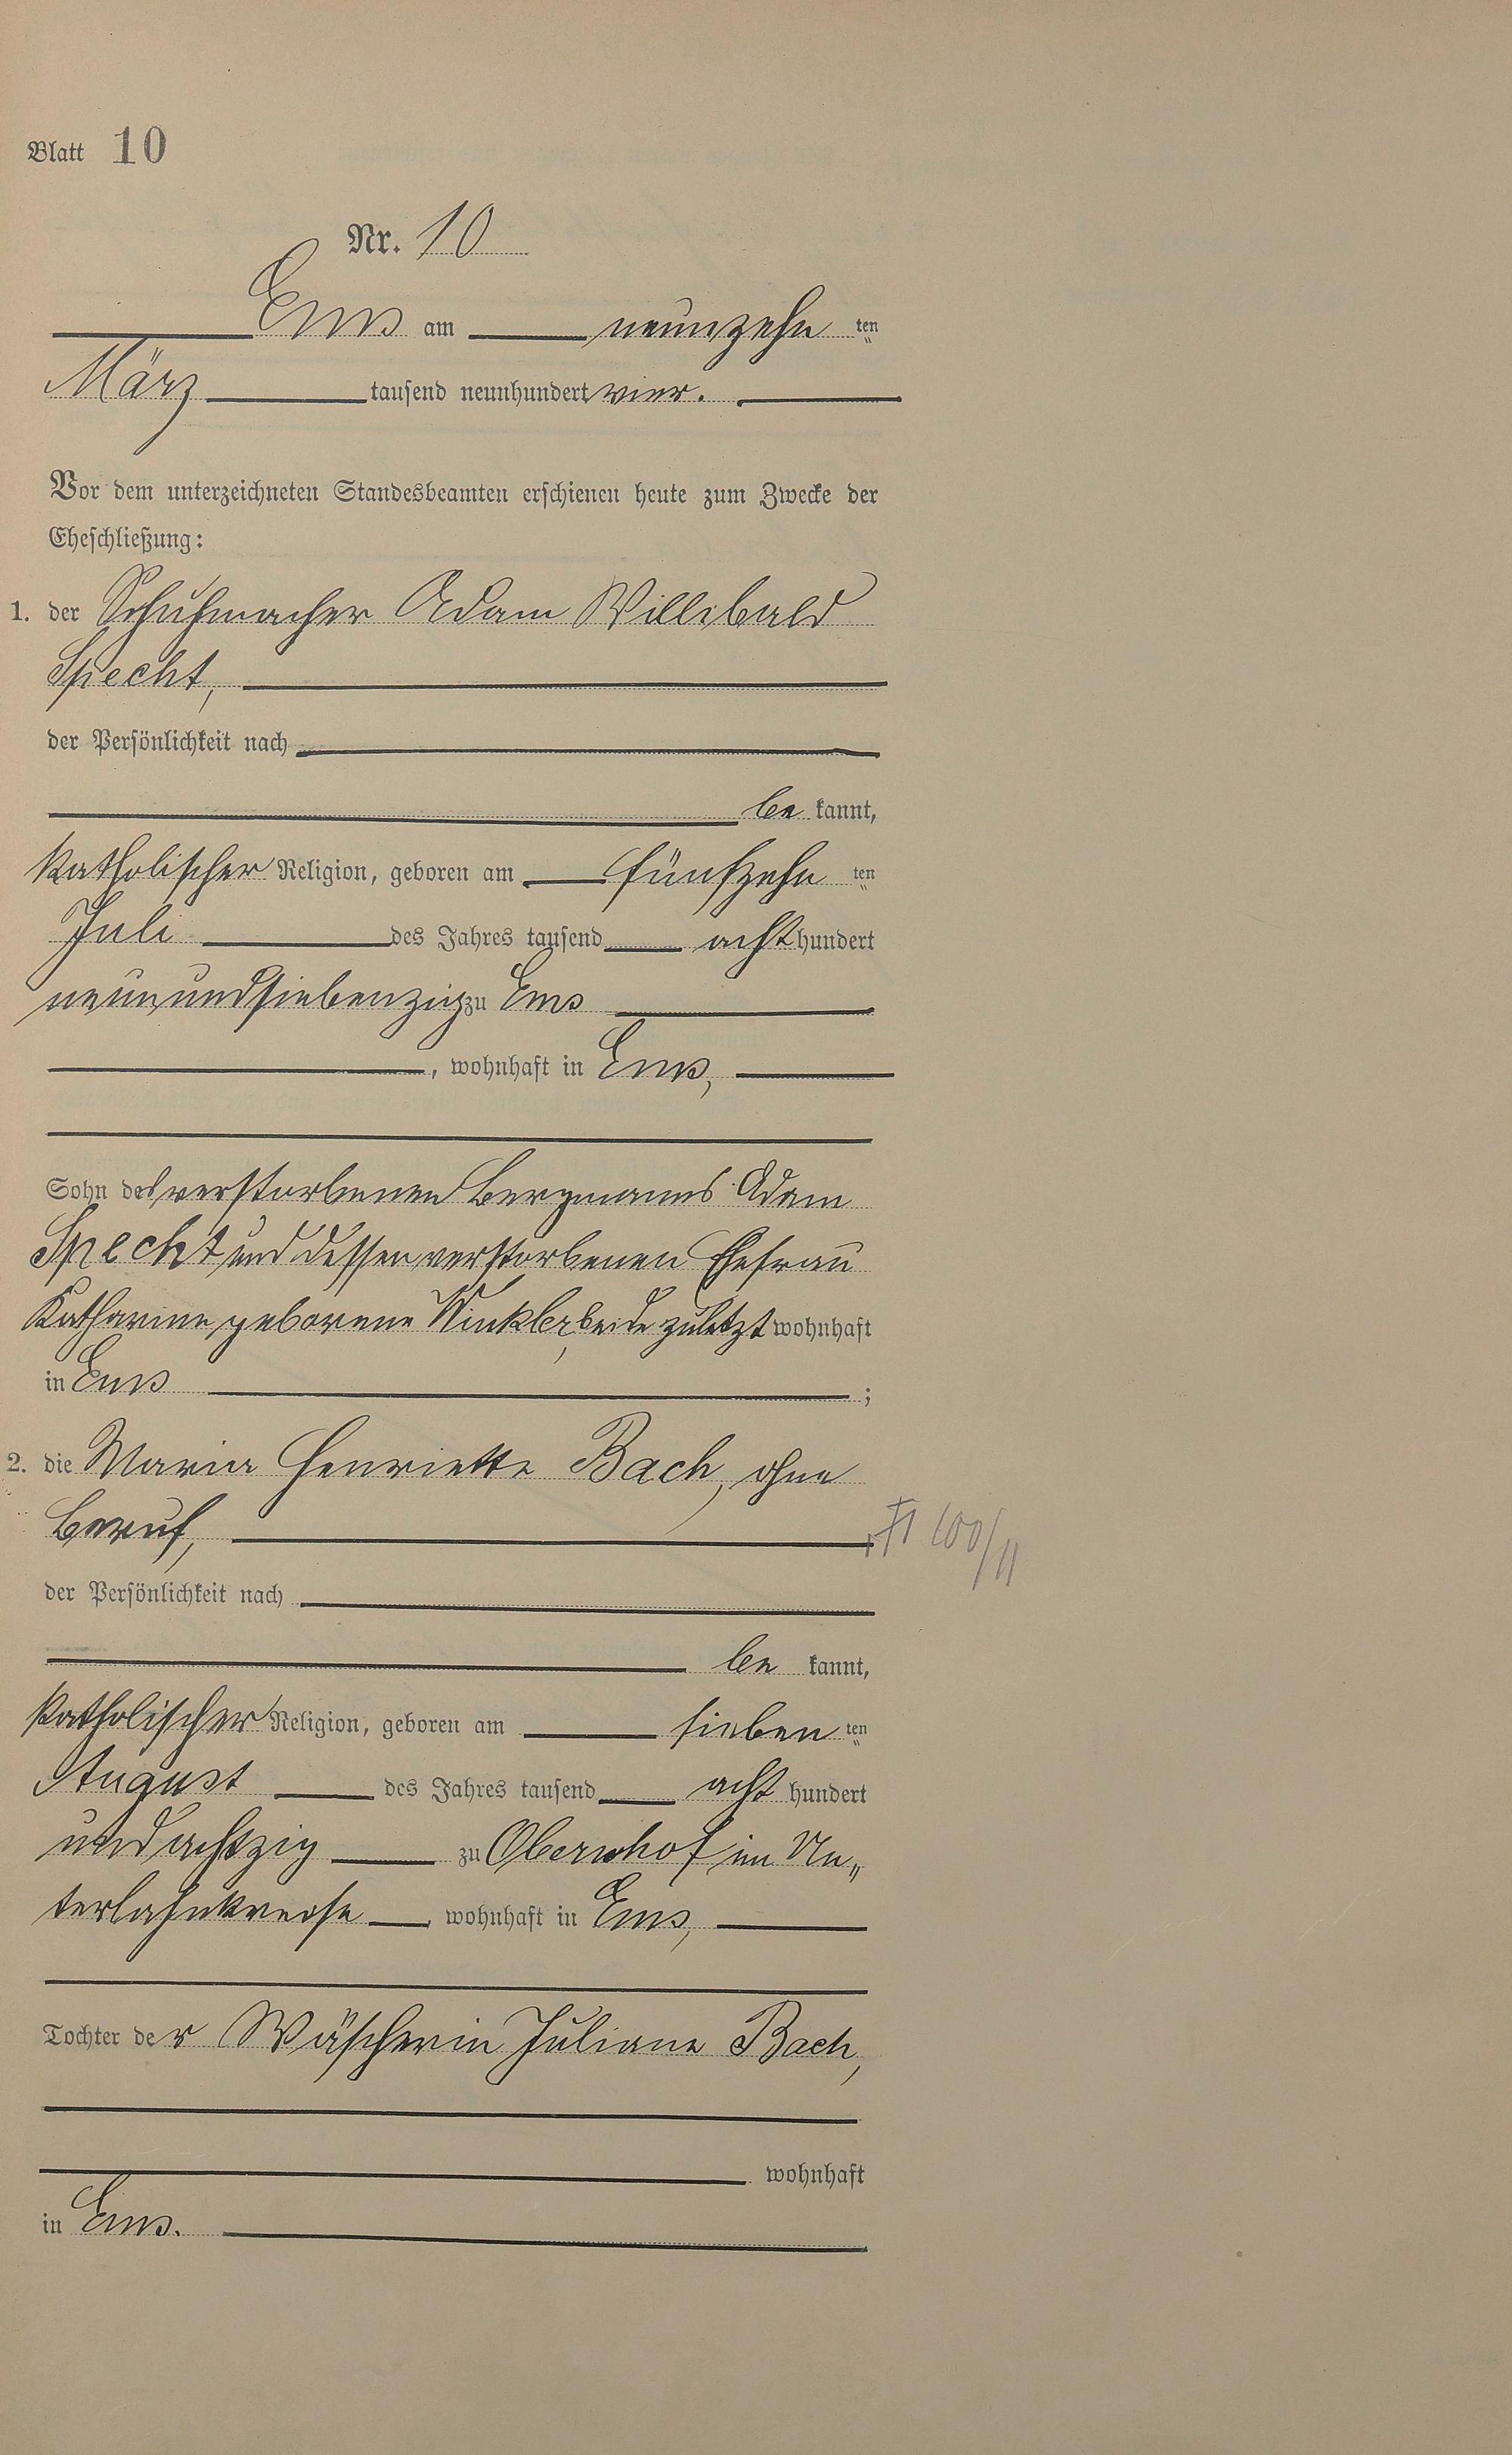 Blatt 10
Nr. 10
Ems am neunzehn ten
März tausend neunhundert vier.
Vor dem unterzeichneten Standesbeamten erschienen heute zum Zwecke der
Eheschließung:
1. der Schuhmacher Adam Willibald
Specht,
der Persönlichkeit nach
be kannt,
katholischer Religion, geboren am fünfzehn ten
Juli des Jahres tausend acht hundert
neunundsiebenzig zu Ems
, wohnhaft in Ems,
Sohn des verstorbenen Bergmanns Adam
Specht und dessen verstorbenen Ehefrau
Katharine geborene Winkler, beide zuletzt wohnhaft
in Ems ;
2. die Maria Henriette Bach, ohne
Beruf,
100/11
der Persönlichkeit nach
be kannt,
katholischer Religion, geboren am sieben ten
August des Jahres tausend acht hundert
undachtzig zu Obernhof im Un„
terlahnkreise, wohnhaft in Ems,
Tochter der Wäscherin Juliane Bach,
wohnhaft
in Ems.